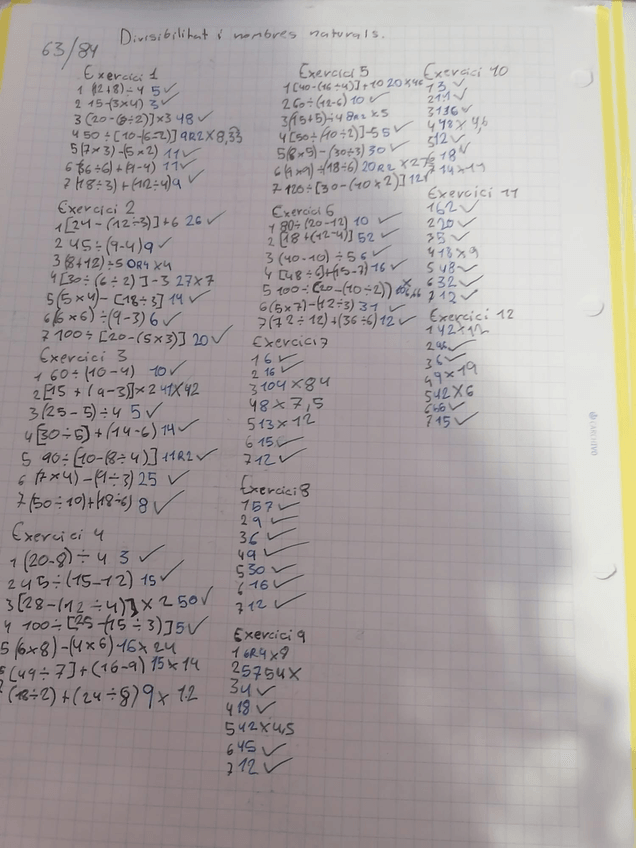 Divisibilitat i nombres naturals.
63/84
Exercici 1
1 (12+8)÷4 5 ✓
2 15-(3×4) 3 ✓
3 (20-(8÷2)]×3 48 ✓
4 50÷[10-(6÷2)] 9R2 × 8,33
5 (7×3)-(5×2) 11 ✓
6 (36÷6)+(9-4) 11 ✓
7 (18÷3)+(12÷4) 9 ✓
Exercici 2
1 [24-(12÷3)]+6 26 ✓
2 45÷(9-4) 9 ✓
3 (8+12)÷5 0R4 × 4
4 [30÷(6÷2)]-3 27 × 7
5 (5×4)-[18÷3] 14 ✓
6 (6×6)÷(9-3) 6 ✓
7 100÷[20-(5×3)] 20 ✓
Exercici 3
1 60÷(10-4) 10 ✓
2 [15+(9-3)]×2 41 × 42
3 (25-5)÷4 5 ✓
4 [30÷5]+(14-6) 14 ✓
5 90÷[10-(8÷4)] 11R2 ✓
6 (7×4)-(9÷3) 25 ✓
7 (50÷10)+(18÷6) 8 ✓
Exercici 4
1 (20-8)÷4 3 ✓
2 45÷(15-12) 15 ✓
3 [28-(12÷4)]×2 50 ✓
4 100÷[25-(15÷3)] 5 ✓
5 (6×8)-(4×6) 16 × 24
[49÷7]+(16-9) 15 × 14
(18÷2)+(24÷8) 9 × 12
Exercici 5
1 [40-(16÷4)]+10 20 × 46
2 60÷(12-6) 10 ✓
3 (15+5)÷4 8R2 × 5
4 [50÷(10÷2)]-5 5 ✓
5 (8×5)-(30÷3) 30 ✓
6 (9×9)÷(18÷6) 20R2 × 27
7 120÷[30-(10×2)] 12 ✓
Exercici 6
1 80÷(20-12) 10 ✓
2 [18+(12-4)] 52 ✓
3 (40-10)÷5 6 ✓
4 [48÷6]+(15-7) 16 ✓
5 100÷[20-(10÷2)]
6 (5×7)-(12÷3) 31 ✓
7 (72÷12)+(36÷6) 12 ✓
Exercici 7
1 6 ✓
2 16 ✓
3 104 × 84
4 8 × 7,5
5 13 × 12
6 15 ✓
7 12 ✓
Exercici 8
1 57 ✓
2 9 ✓
3 6 ✓
4 9 ✓
5 30 ✓
6 16 ✓
7 12 ✓
Exercici 9
1 6R4 × 8
2 57 54 ×
3 4 ✓
4 18 ✓
5 42 × 4,5
6 45 ✓
7 12 ✓
Exercici 10
1 3 ✓
2 11 ✓
3 136 ✓
4 48 × 4,6
5 12 ✓
18 ✓
7 14 × 11
Exercici 11
1 62 ✓
2 20 ✓
3 5 ✓
4 18 × 9
5 48 ✓
6 32 ✓
7 12 ✓
Exercici 12
1 42 × 12
3 6 ✓
4 9 × 19
5 42 × 6
7 15 ✓